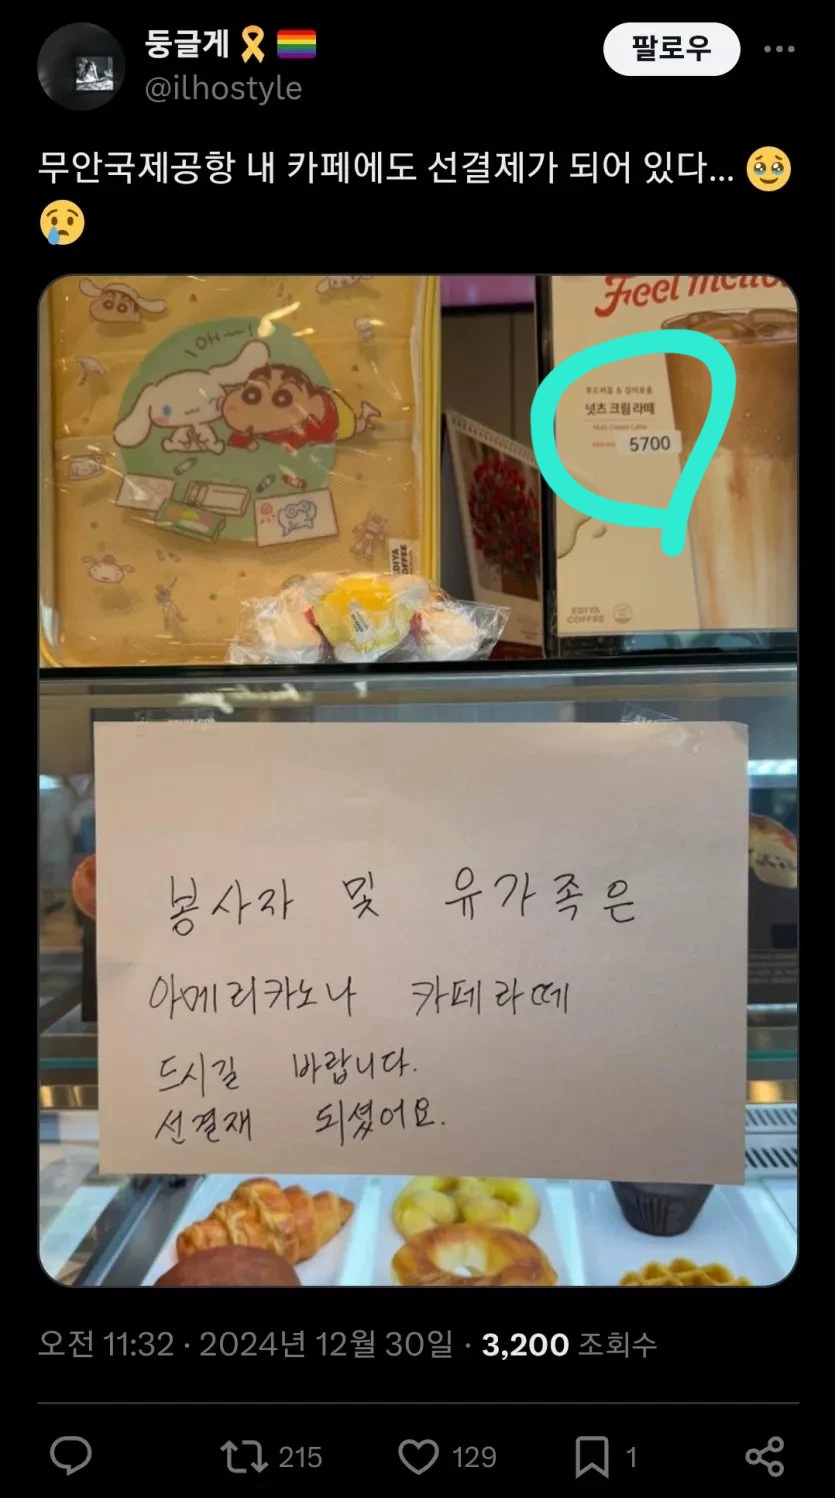 둥글게🎗️🏳️‍🌈
팔로우
@ilhostyle
무안국제공항 내 카페에도 선결제가 되어 있다... 🥹
😢
OH~!
Feel
넛츠 크림 라떼
Nuts Cream Latte
5700
EDIYA
COFFEE
봉사자 및 유가족은
아메리카노나 카페라떼
드시길 바랍니다.
선결재 되셨어요.
오전 11:32 · 2024년 12월 30일 · 3,200 조회수
215
129
1